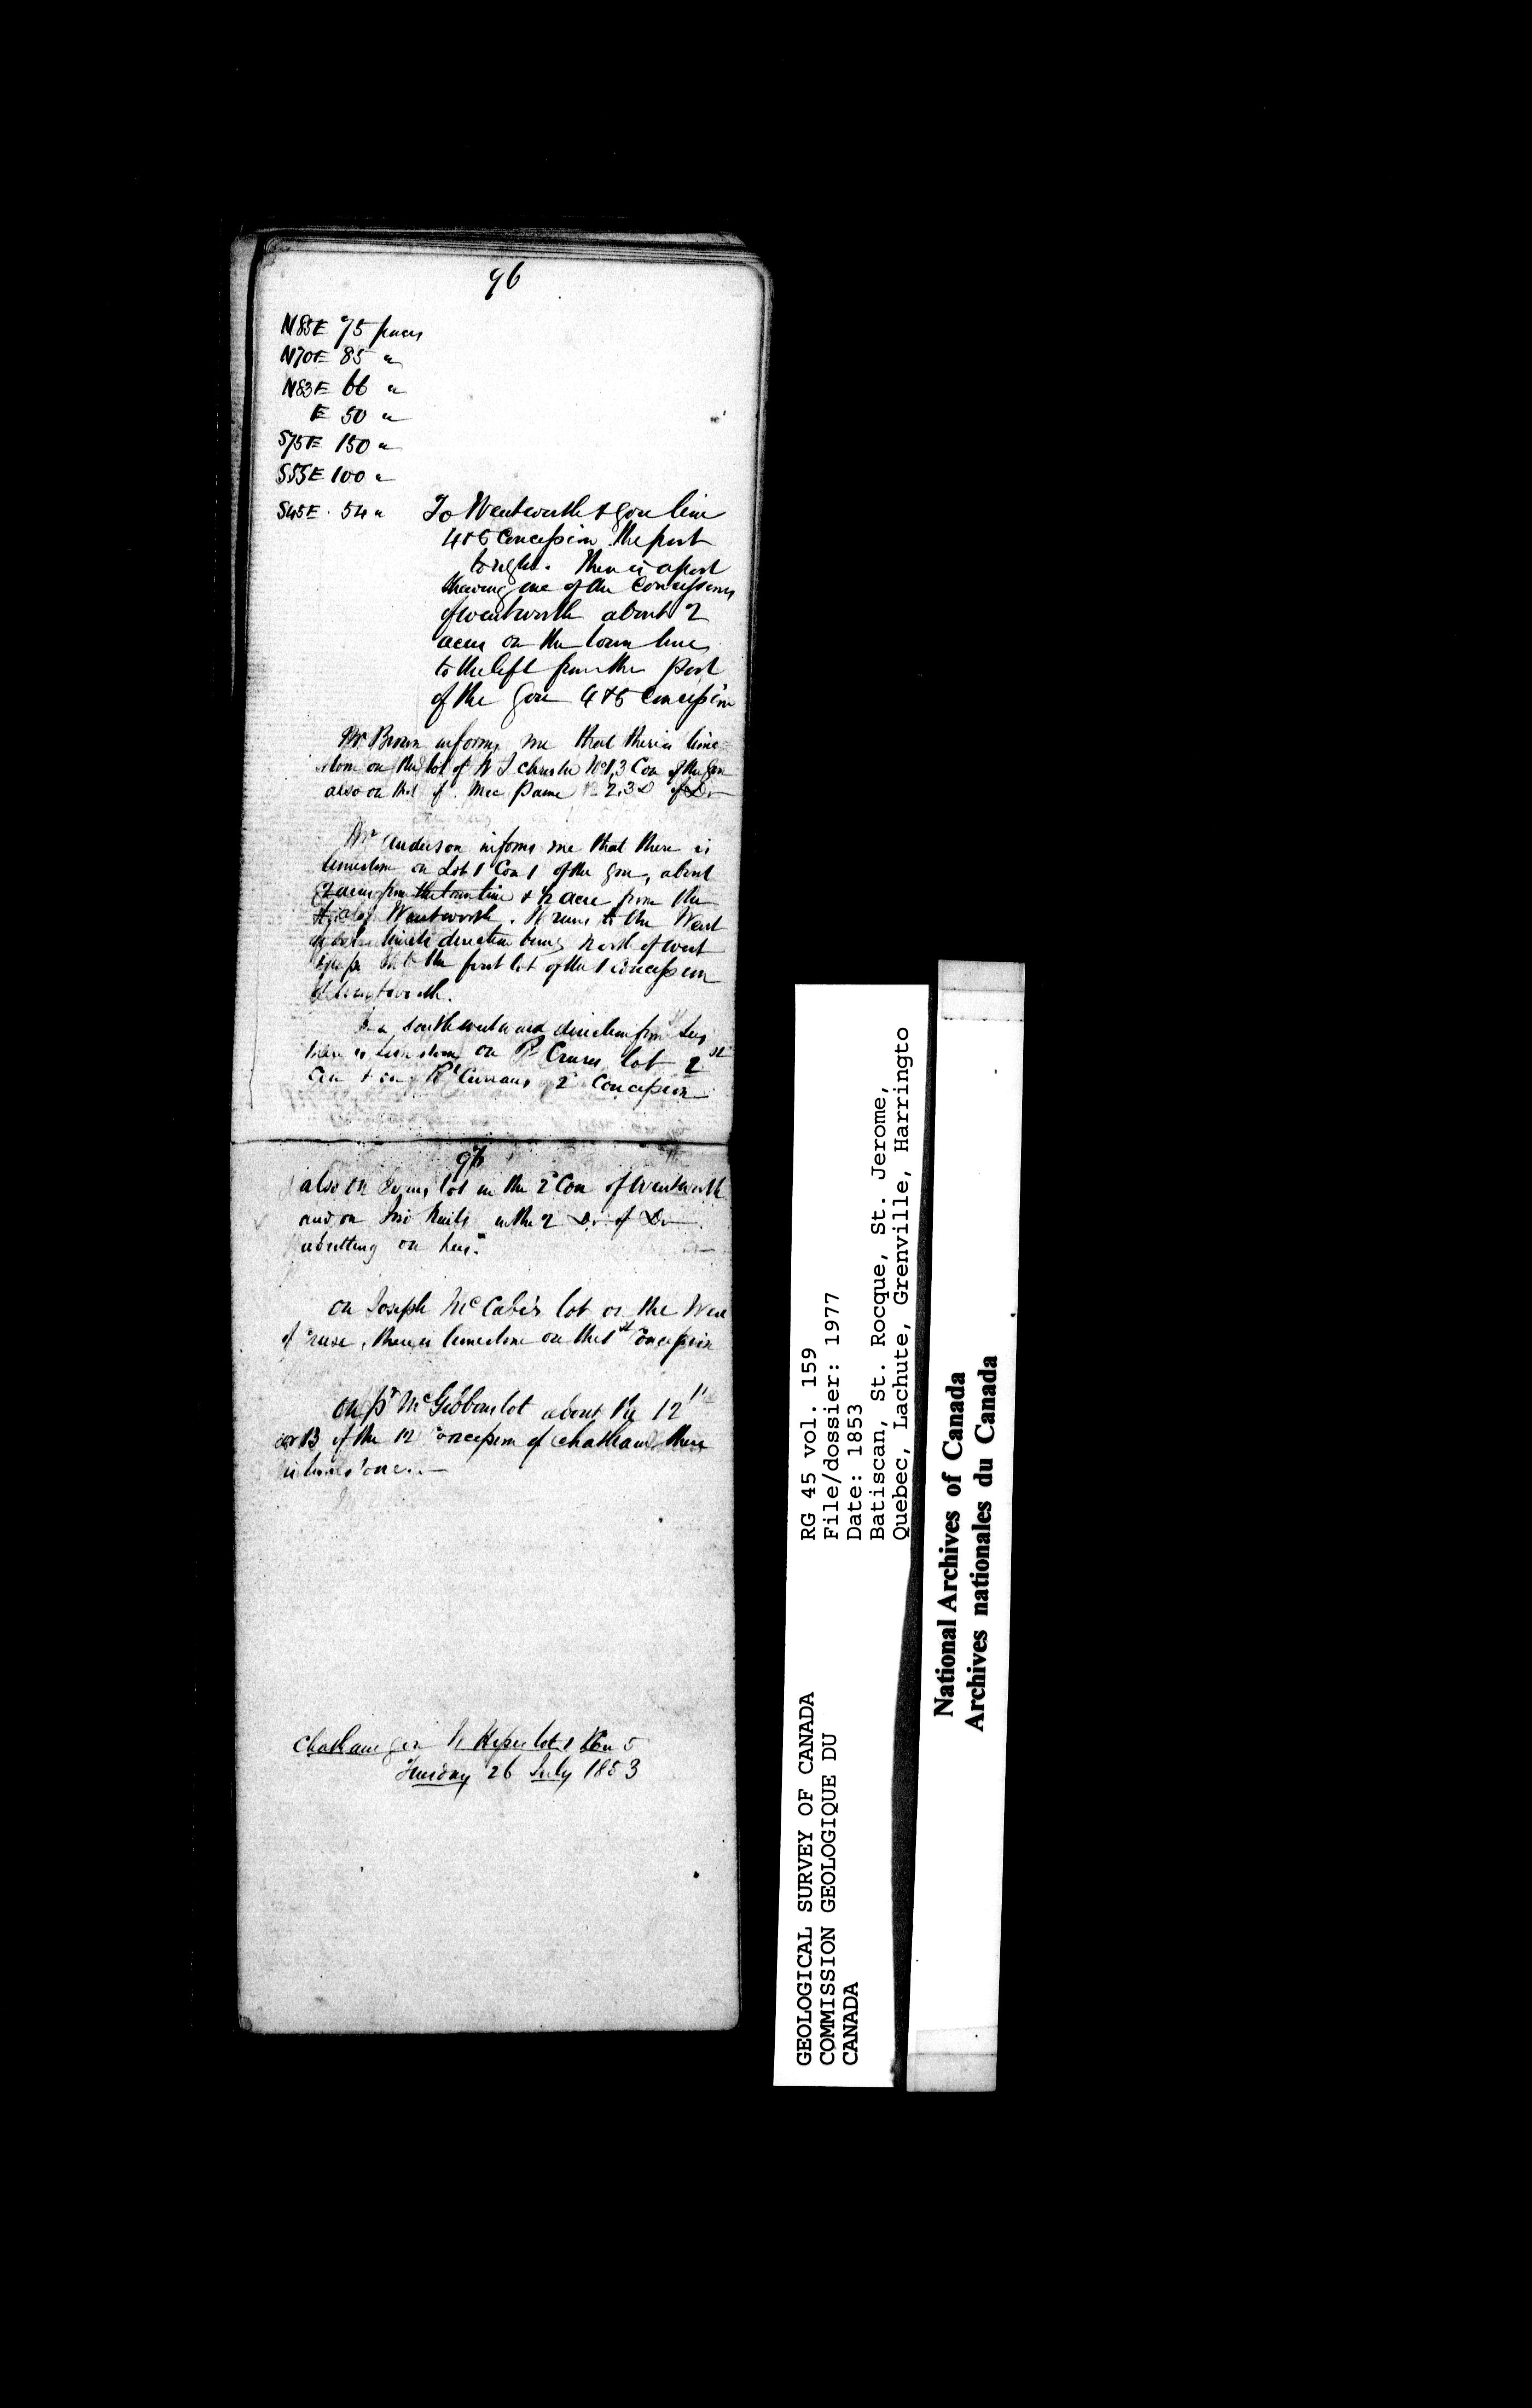 96
N85E 75 paces
N70E 85 "
N83E 66 "
E 50 "
S75E 150 "
S55E 100 "
S45E 54 " To Wentworth & Gore line
4 & 5 Concession the post
to right. There is a post
shewing one of the Concessions
of Wentworth about 2
acres on the town line
to the left from the post
of the Gore 4 & 5 Concession
Mr Brown informs me that there is lime
stone on the lot of Christie No 1, 3 Con of the Gore
also on that of Payne 2, 3 Do of Do
Mr Anderson informs me that there is
limestone on Lot 1 Con 1 of the Gore, about
2 acres from the town line & 1/2 acre from the
of Wentworth. It runs to the West
direction being North of west
the first lot of the 1 Concession
of Wentworth.
In a south westward direction from
there is limestone on Cruses lot
Con & on 2d Concession
97
also on lot in the 2d Con of Wentworth
and on in the 2 Do of Do
abutting on
On Joseph McCabe's lot on the West
of Cruse, there is limestone on the 1st Concession
On McGibbons lot about the 12th
or 13 of the 12 Concession of Chatham there
is limestone.
Chatham Gore lot 1 Con 5
Tuesday 26 July 1853
RG 45 vol. 159
File/dossier: 1977
Date: 1853
Batiscan, St. Rocque, St. Jerome,
Quebec, Lachute, Grenville, Harringto
GEOLOGICAL SURVEY OF CANADA
COMMISSION GEOLOGIQUE DU
CANADA
National Archives of Canada
Archives nationales du Canada